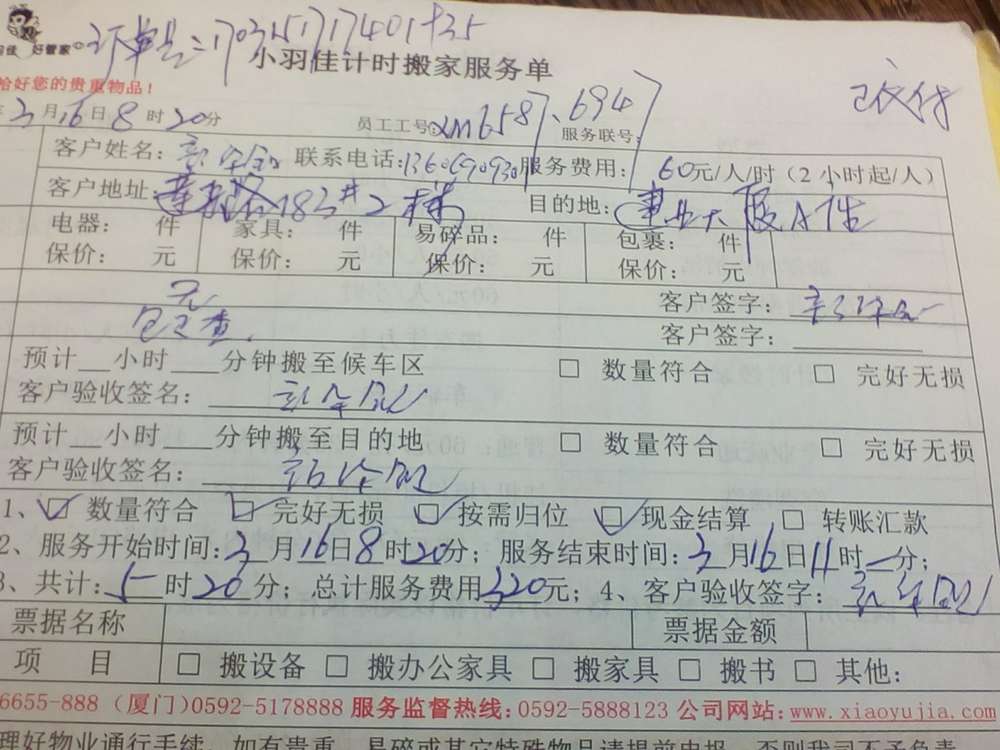 好管家
订单号:1703151717401435
小羽佳计时搬家服务单
已支付
恰好您的贵重物品!
3月16日8时20分 员工工号:xm6587、6947 服务联号:
客户姓名: 联系电话: 服务费用: 60元/人/时(2小时起/人)
客户地址: 183#2梯 目的地:建业大厦A
电器: 件 家具: 件 易碎品: 件 包裹: 件
保价: 元 保价: 元 保价: 元 保价: 元
无 客户签字:
已检查. 客户签字:
预计__小时___分钟搬至候车区 □ 数量符合 □ 完好无损
客户验收签名:
预计__小时___分钟搬至目的地 □ 数量符合 □ 完好无损
客户验收签名:
1、☑ 数量符合 ☑ 完好无损 ☑ 按需归位 ☑ 现金结算 □ 转账汇款
2、服务开始时间:3月16日8时20分;服务结束时间:3月16日11时一分;
3、共计:5时20分;总计服务费用320元;4、客户验收签字:
票据名称 票据金额
项 目 □ 搬设备 □ 搬办公家具 □ 搬家具 □ 搬书 □ 其他:
6655-888(厦门)0592-5178888 服务监督热线:0592-5888123 公司网站:www.xiaoyujia.com
理好物业通行手续,如有贵重、易碎或其它特殊物品请提前申报,否则我司不予负责